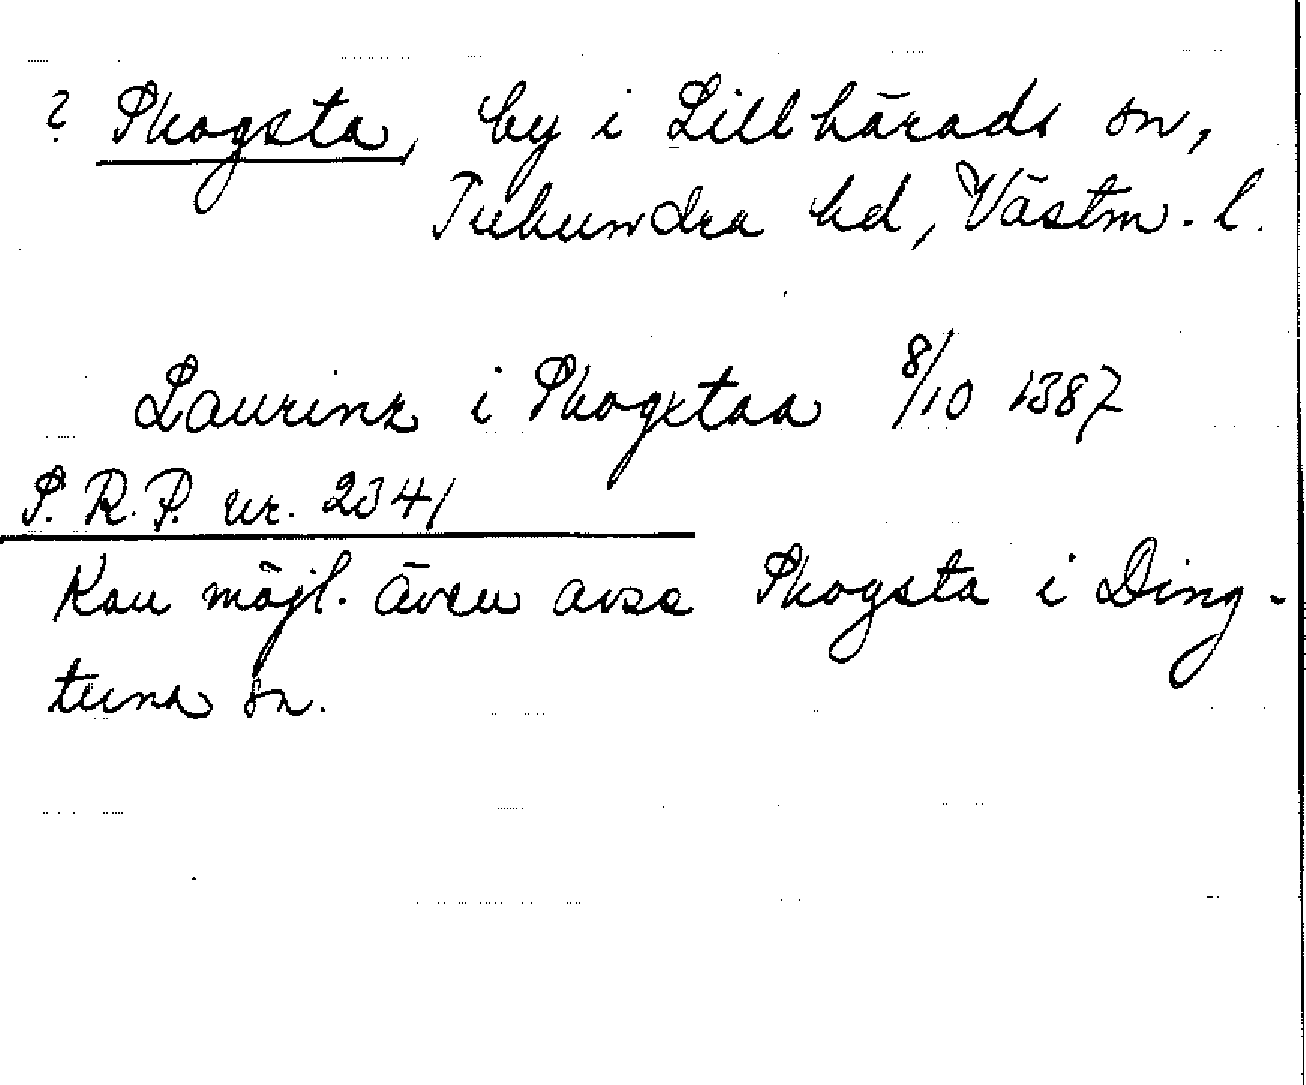 ? Skogsta, by i Lillhärads sn,
Tuhundra hd, Västm. l.
Laurinz i Skogstaa 8/10 1387
S. R. P. nr. 2341
Kan möjl. även avse Skogsta i Ding-
tuna sn.